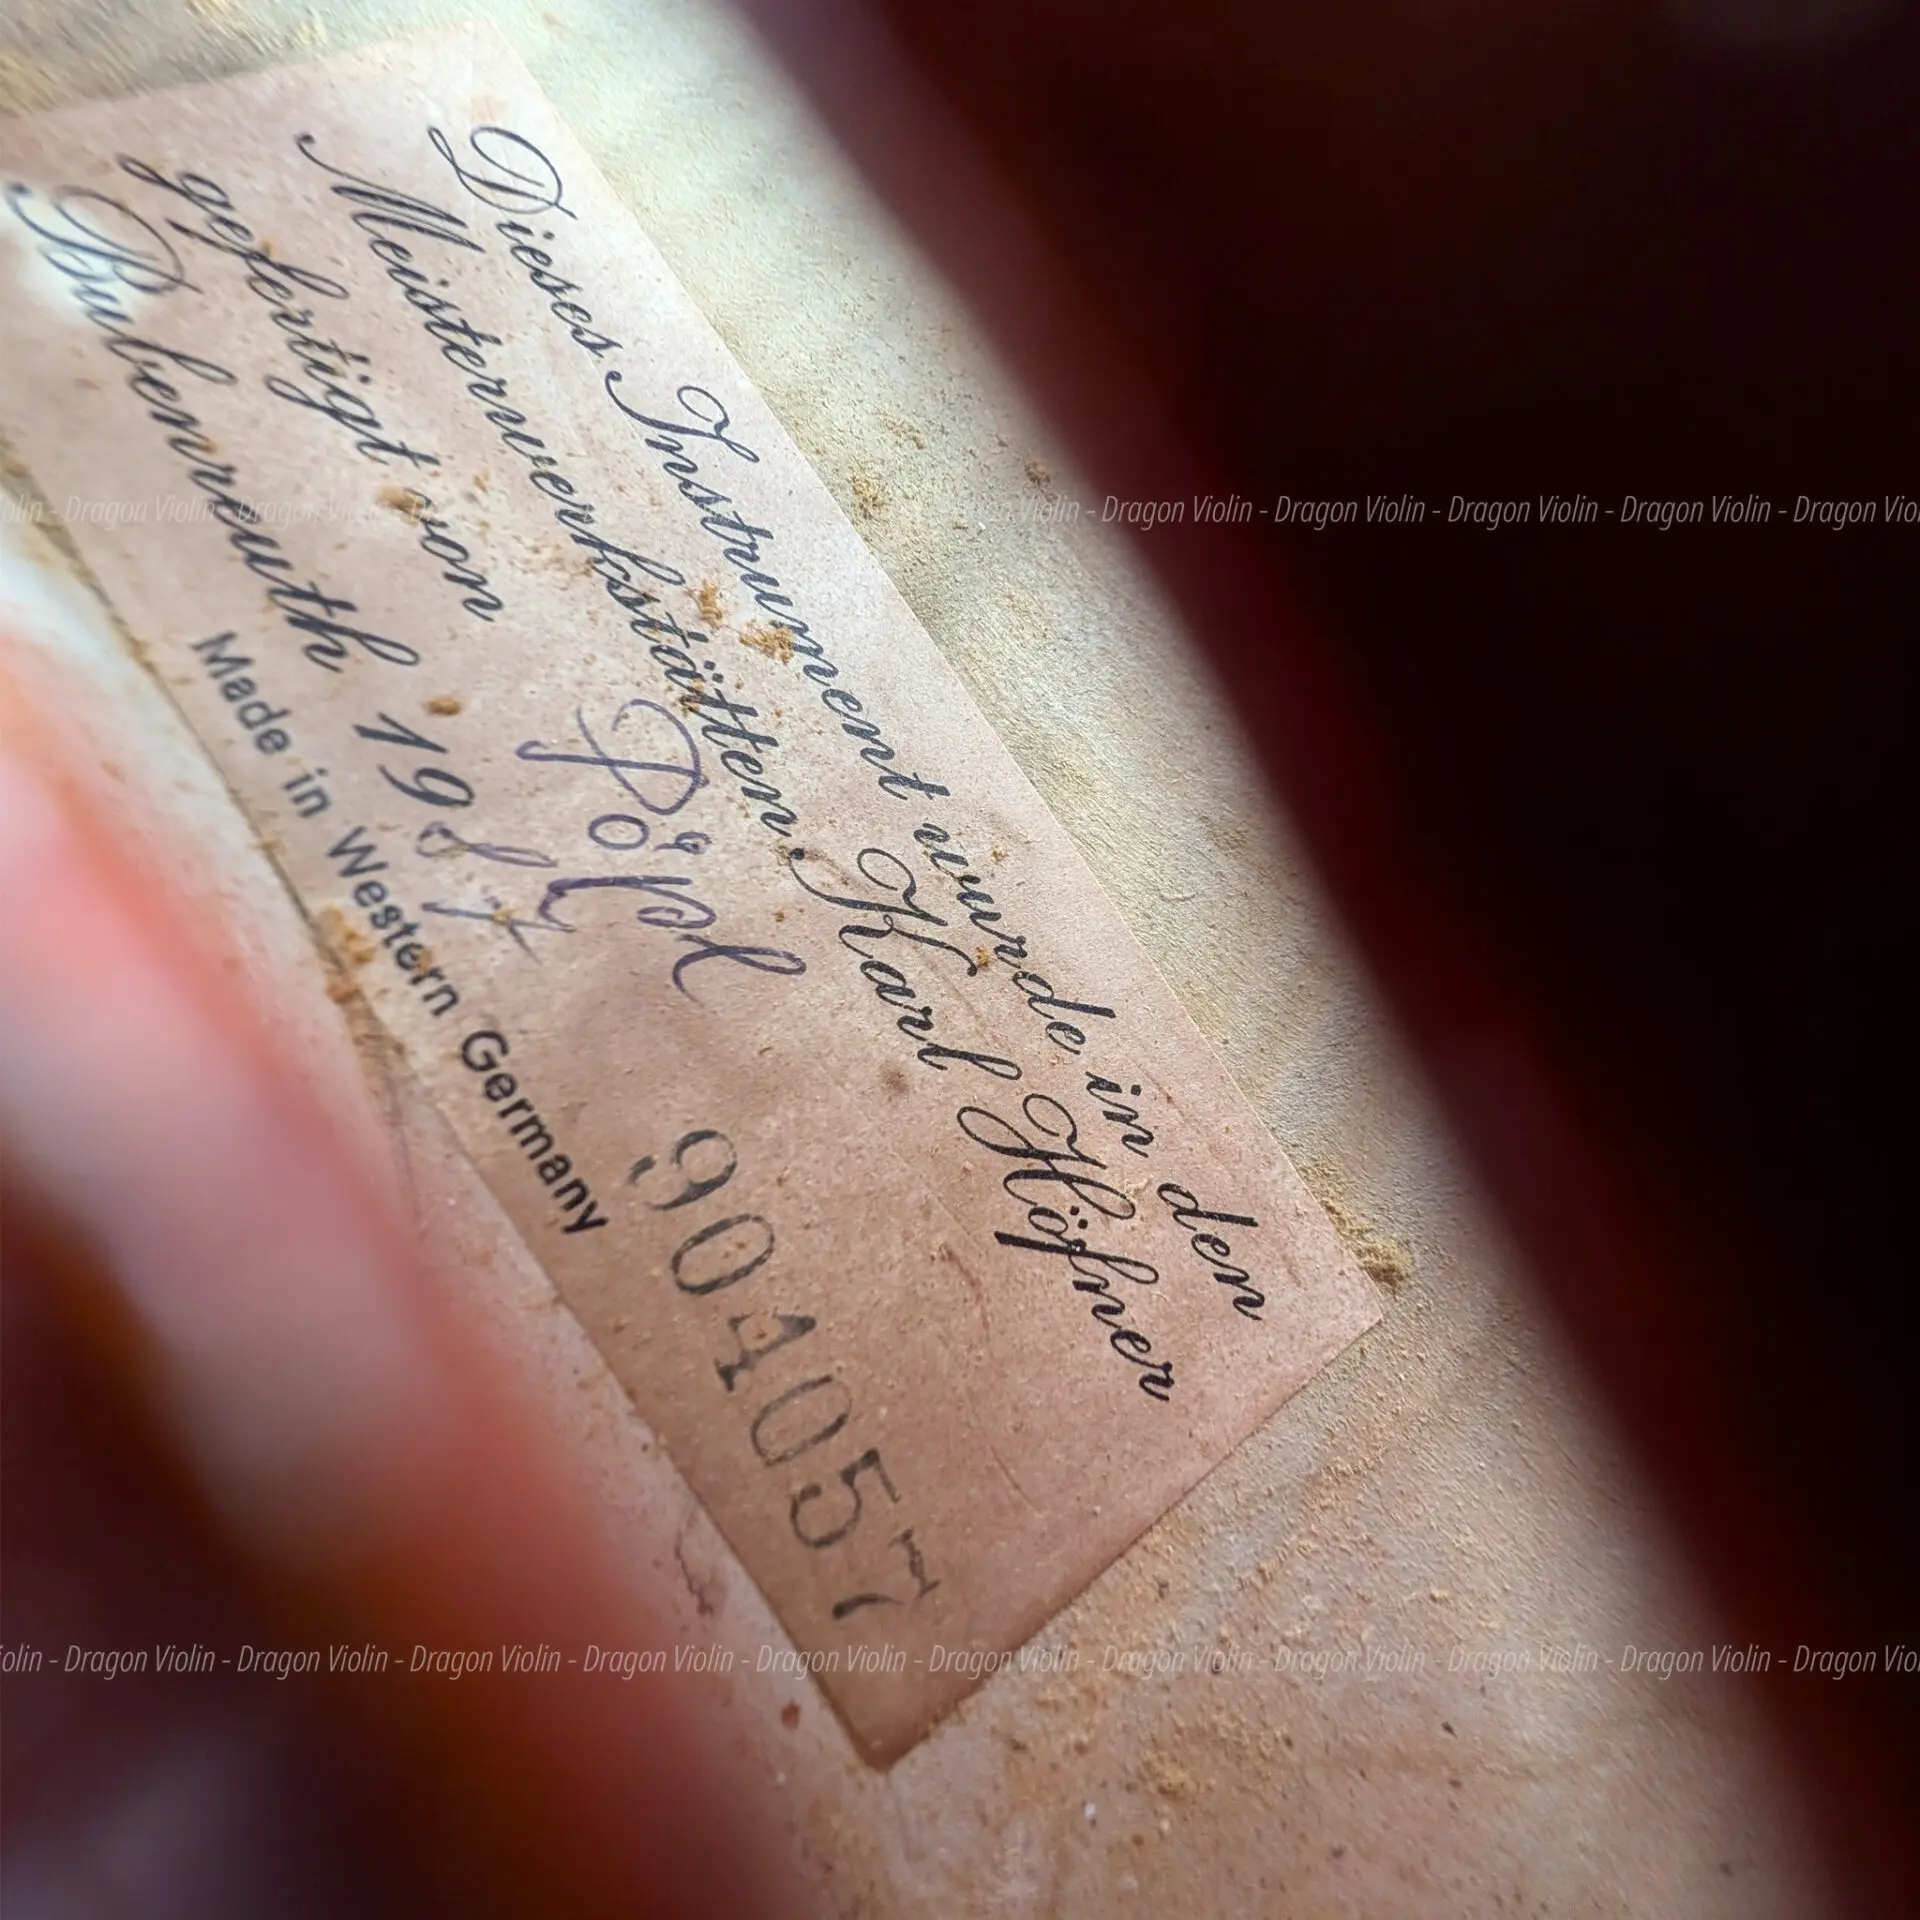 Dieses Instrument wurde in den
Meisterwerkstätten Karl Höfner
gefertigt von
Bubenreuth 1987
904057
Made in Western Germany
Dragon Violin - Dragon Violin - Dragon Violin - Dragon Violin - Dragon Violin
Dragon Violin - Dragon Violin - Dragon Violin - Dragon Violin - Dragon Violin - Dragon Violin - Dragon Violin - Dragon Violin - Dragon Violin - Dragon Violin